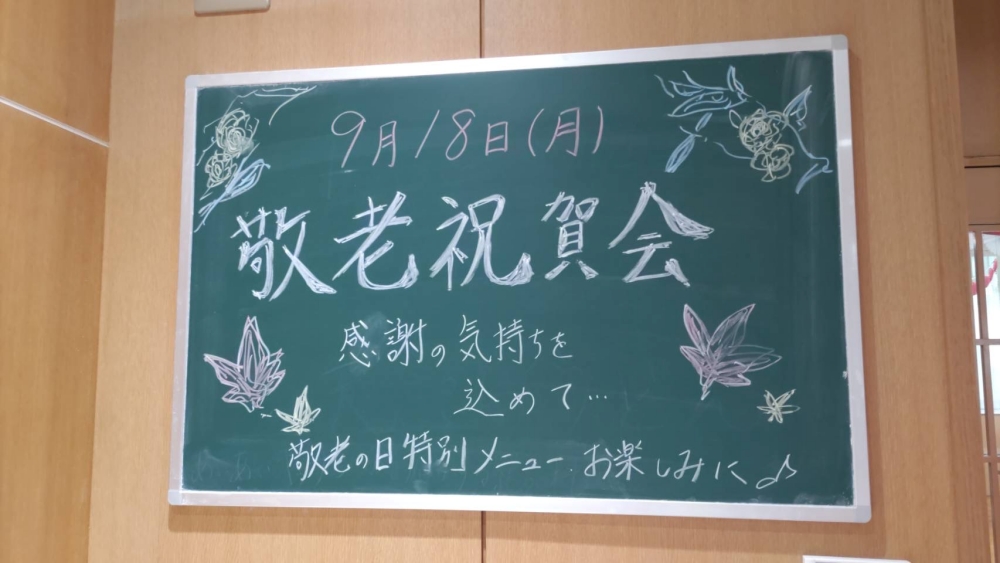 9月18日(月)
敬老祝賀会
感謝の気持ちを
込めて…
敬老の日特別メニュー お楽しみに♪